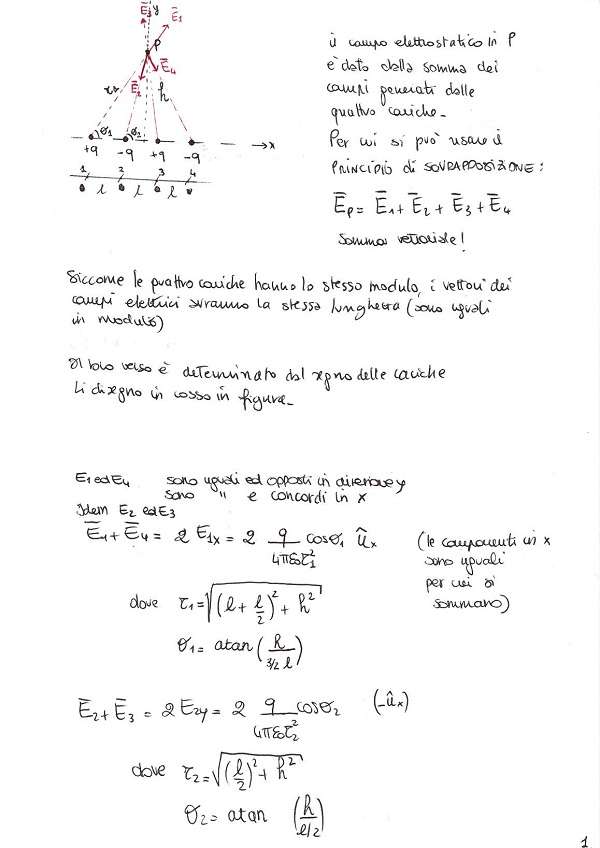 E̅3 y
E̅1
P
E̅4
E̅2
r1
h
θ1 θ2
+q -q +q -q x
1 2 3 4
l l l
il campo elettrostatico in P
è dato dalla somma dei
campi generati dalle
quattro cariche.
Per cui si può usare il
PRINCIPIO di SOVRAPPOSIZIONE:
E̅p = E̅1 + E̅2 + E̅3 + E̅4
somma vettoriale!
Siccome le quattro cariche hanno lo stesso modulo, i vettori dei
campi elettrici avranno la stessa lunghezza (sono uguali
in modulo)
Il loro verso è determinato dal segno delle cariche
Li disegno in rosso in figura.
E1 ed E4 sono uguali ed opposti in direzione y
sono " e concordi in x
Idem E2 ed E3
E̅1 + E̅4 = 2 E1x = 2 q/(4πε0r1²) cosθ1 ûx (le componenti in x
sono uguali
per cui si
sommano)
dove r1 = √((l + l/2)² + h²)
θ1 = atan(h/(3/2 l))
E̅2 + E̅3 = 2 E2y = 2 q/(4πε0r2²) cosθ2 (-ûx)
dove r2 = √((l/2)² + h²)
θ2 = atan (h/(l/2))
1